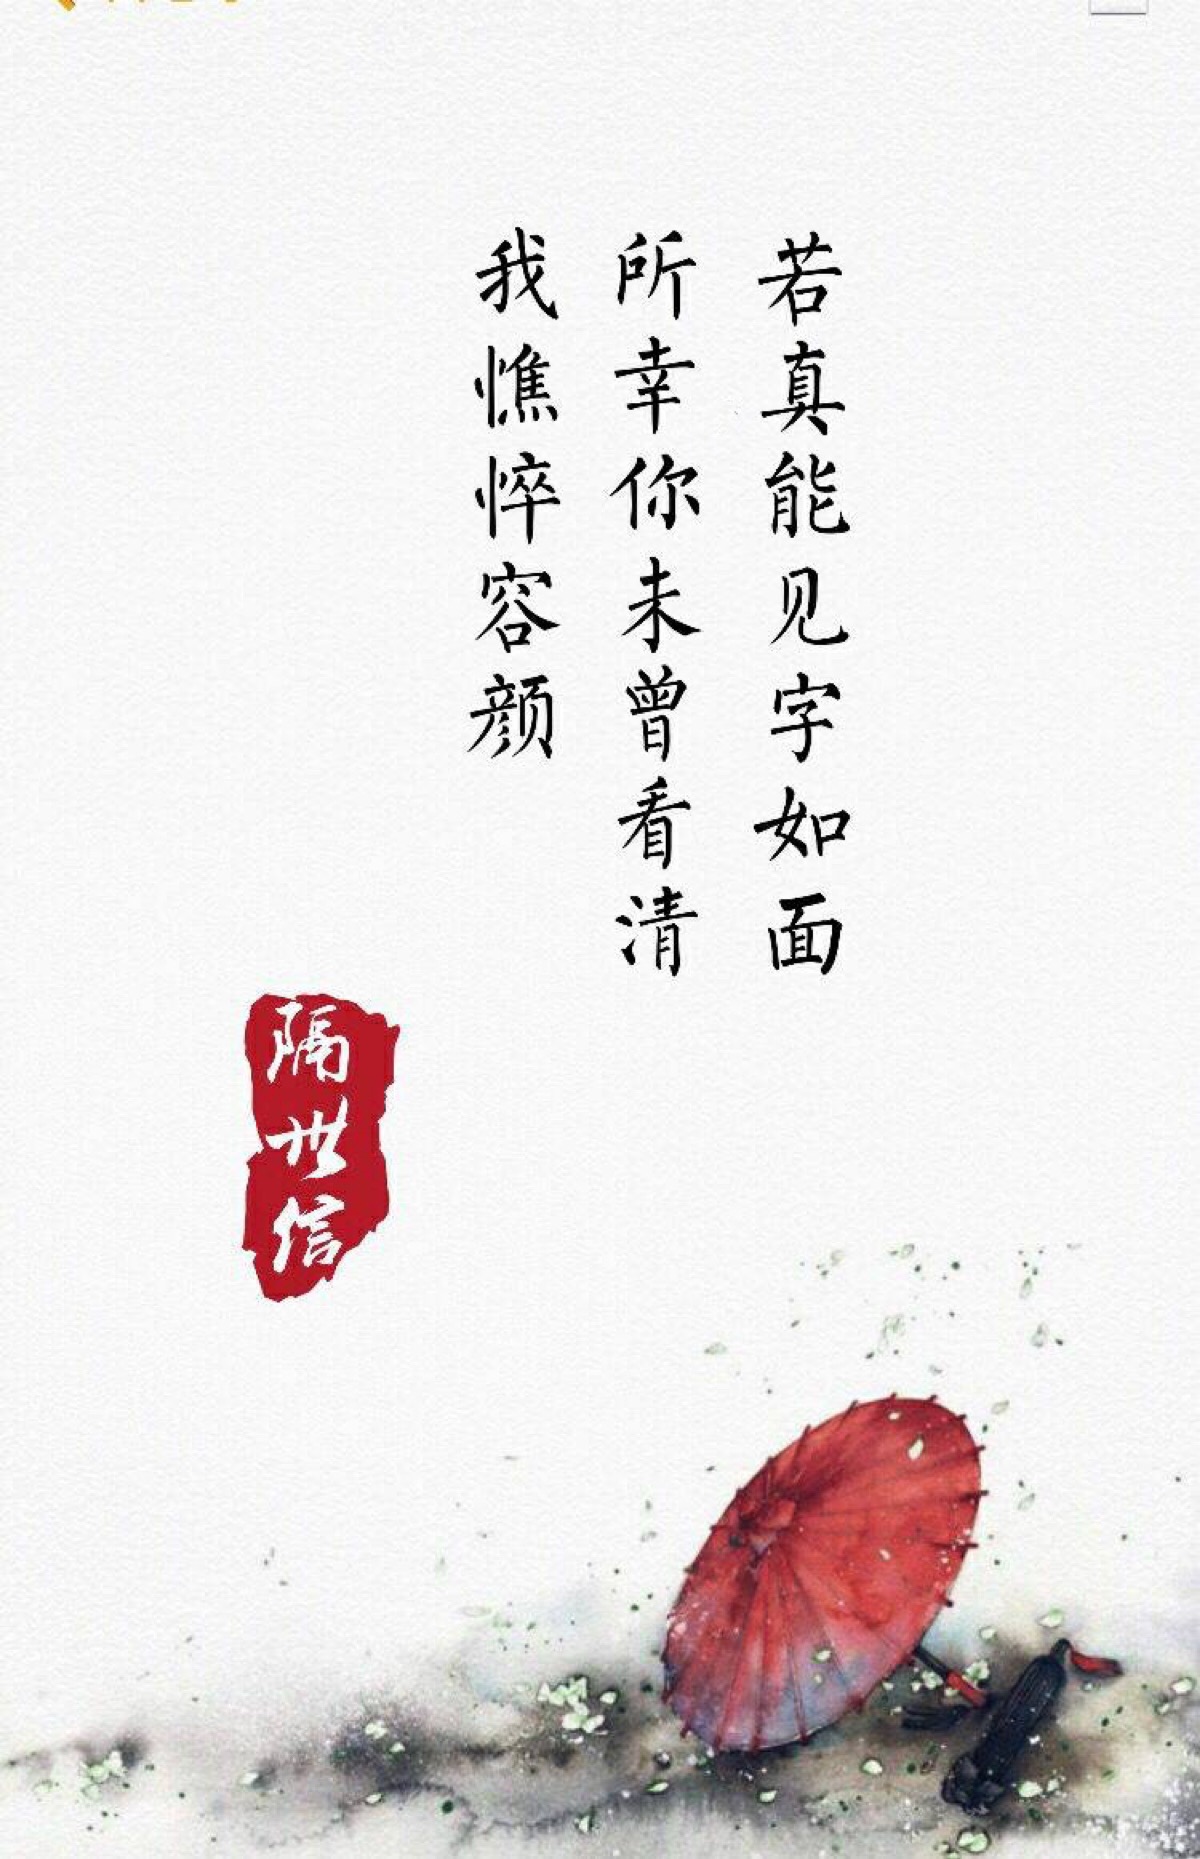 若真能见字如面
所幸你未曾看清
我憔悴容颜
隔世信